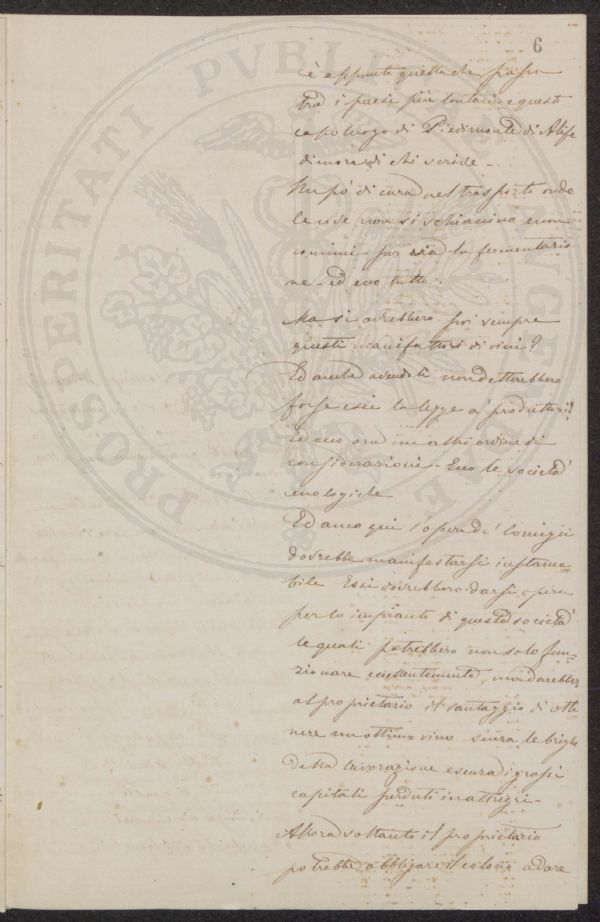 6
è appunto quella che passa
tra i paesi più lontani e questo
capoluogo di Piedimonte di Alife
dimora di chi scrive -
Un pò di cura nel trasporto onde
le uve non si schiaccino e non
cominci per via la fermentazio
ne - ed ecco tutto -
Ma si avrebbero poi sempre
questi manifattori di vini?
Ed anche avendoli non detterebbero
forse essi la legge a' produttori!
Ed ecco ora un altro ordine di
considerazioni - Ecco le società
enologiche
Ed anco qui l'opera de' Comizii
dovrebbe manifestarsi instanca-
bile Essi dovrebbero darsi opera
per lo impianto di queste società
le quali potrebbero non solo fun-
zionare eccellentemente, ma darebbero
al proprietario il vantaggio di otte-
nere un ottimo vino senza le brighe
della lavorazione e senza di grossi
capitali perduti in attrezzi -
Allora soltanto il proprietario
potrebbe obbligare il colono a dare
PROSPERITATI PVBLICAE AVGENDAE